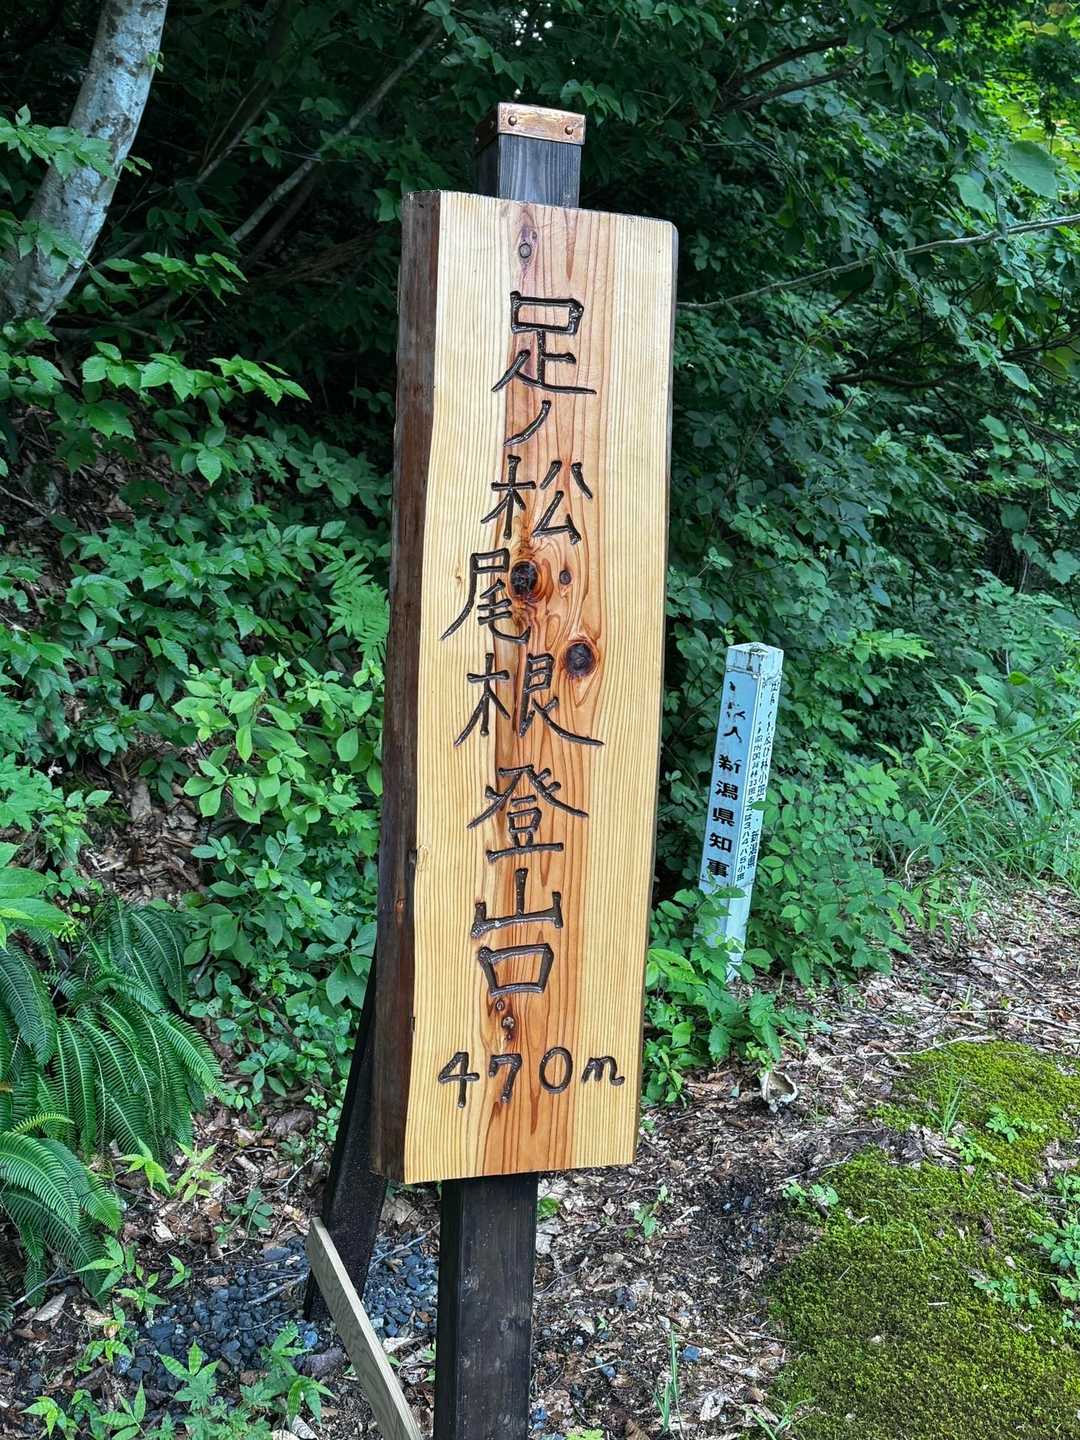 足ノ松尾根登山口
470m
新潟県知事